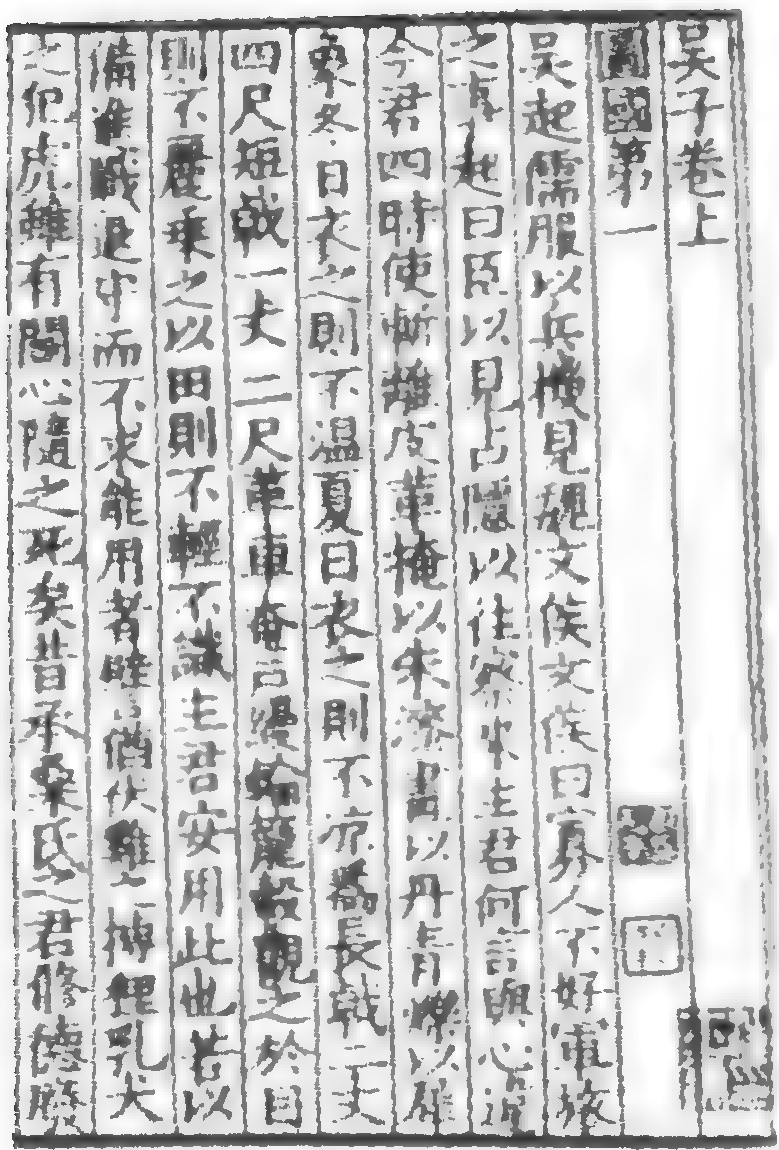 吳子卷上
圖國第一
吳起儒服以兵機見魏文侯文侯曰寡人不好軍旅
之事起曰臣以見占隱以往察來主君何言與心違
今君四時使斬離皮革掩以朱漆畫以丹青爍以犀
象冬日衣之則不溫夏日衣之則不凉爲長戟二丈
四尺短戟一丈二尺革車奄戶縵輪籠轂觀之於目
則不麗乘之以田則不輕不識主君安用此也若以
備進戰退守而不求能用者譬猶伏雞之搏狸乳犬
之犯虎雖有鬬心隨之死矣昔承桑氏之君修德廢